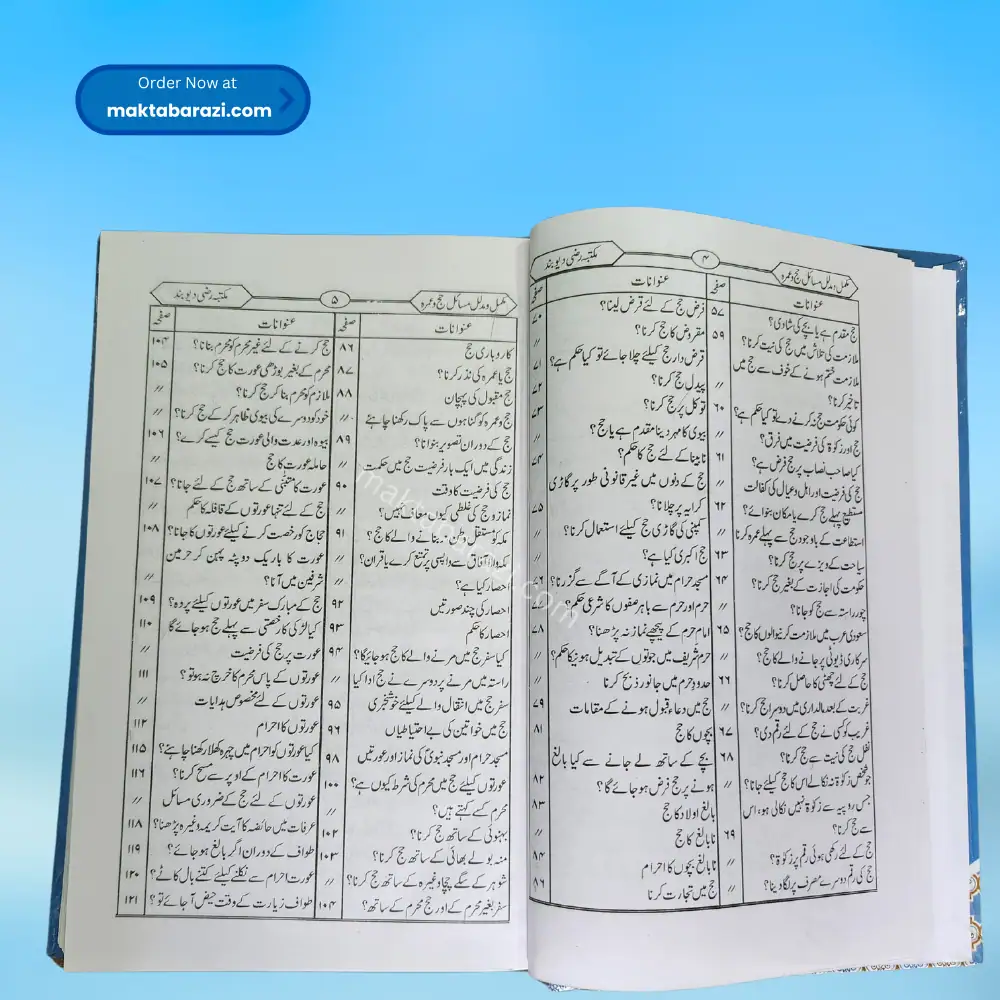 Order Now at
maktabarazi.com
مکتبہ رضی دیوبند
۴
مکمل ومدلل مسائل حج وعمرہ
عنوانات
صفحہ
حج مقدم ہے یا بچے کی شادی؟
۵۷
ملازمت کی تلاش میں حج کی نیت کرنا؟
۵۹
ملازمت ختم ہونے کے خوف سے حج میں
تاخیر کرنا؟
〃
کوئی حکومت حج نہ کرنے دے تو کیا حکم ہے؟
۶۰
حج اور زکوٰۃ کی فرضیت میں فرق؟
〃
کیا صاحب نصاب پر حج فرض ہے؟
۶۱
حج کی فرضیت اور اہل وعیال کی کفالت
〃
مستطیع پہلے حج کرے یا مکان بنوائے؟
۶۲
استطاعت کے باوجود حج سے پہلے عمرہ کرنا
〃
سیاحت کے ویزے پر حج کرنا؟
۶۳
حکومت کی اجازت کے بغیر حج کرنا؟
۶۴
چور راستہ سے حج کو جانا؟
〃
سعودی عرب میں ملازمت کرنیوالوں کا حج؟
۶۵
سرکاری ڈیوٹی پر جانے والے کا حج؟
〃
حج کے لئے چھٹی کا حاصل کرنا؟
۶۶
غربت کے بعد مالداری میں دوسرا حج کرنا؟
〃
غریب کو کسی نے حج کے لئے رقم دی؟
۶۷
نفل حج کی نیت سے حج کرنا؟
۶۸
جو شخص زکوٰۃ نہ نکالے اس کا حج کیلئے جانا؟
〃
جس روپیہ سے زکوٰۃ نہیں نکالی ہو، اس
سے حج کرنا؟
۶۹
حج کے لئے رکھی ہوئی رقم پر زکوٰۃ؟
〃
حج کی رقم دوسرے مصرف پر لگا دینا؟
〃
عنوانات
صفحہ
فرض حج کے لئے قرض لینا؟
۷۰
مقروض کا حج کرنا؟
〃
قرض دار حج کیلئے چلا جائے تو کیا حکم ہے؟
۷۱
پیدل حج کرنا؟
۷۲
توکل پر حج کرنا؟
۷۳
بیوی کا مہر دینا مقدم ہے یا حج؟
〃
نابینا کے لئے حج کا حکم؟
۷۴
حج کے دنوں میں غیر قانونی طور پر گاڑی
کرایہ پر چلانا؟
۷۵
کمپنی کی گاڑی حج کیلئے استعمال کرنا؟
〃
حج اکبری کیا ہے؟
〃
مسجد حرام میں نمازی کے آگے سے گزرنا؟
۷۶
حرم اور حرم سے باہر صفوں کا شرعی حکم؟
〃
امام حرم کے پیچھے نماز نہ پڑھنا؟
۷۸
حرم شریف میں جوتوں کے تبدیل ہونیکا حکم؟
〃
حدود حرم میں جانور ذبح کرنا
〃
حج میں دعاء قبول ہونے کے مقامات
۷۹
بچوں کا حج
۸۱
بچے کے ساتھ لے جانے سے کیا بالغ
ہونے پر حج فرض ہو جائے گا؟
۸۲
بالغ اولاد کا حج
۸۳
نابالغ کا حج
〃
نابالغ بچوں کا احرام
۸۴
حج میں تجارت کرنا
۸۶
مکتبہ رضی دیوبند
۵
مکمل ومدلل مسائل حج وعمرہ
عنوانات
صفحہ
کاروباری حج
۸۶
حج یا عمرہ کی نذر کرنا؟
۸۷
حج مقبول کی پہچان
۸۸
حج وعمرہ کو گناہوں سے پاک رکھنا چاہئے
〃
حج کے دوران تصویر بنوانا؟
۸۹
زندگی میں ایک بار فرضیت حج میں حکمت
〃
حج کی فرضیت کا وقت
۹۰
نماز وحج کی غلطی کیوں معاف نہیں؟
〃
مکہ کو مستقل وطن نہ بنانے والے کا حج؟
۹۱
مکہ والا آفاق سے واپسی پر تمتع کرے یا قران؟
〃
احصار کیا ہے؟
〃
احصار کی چند صورتیں
۹۲
احصار کا حکم
۹۳
کیا سفر حج میں مرنے والے کا حج ہو جائیگا؟
۹۴
راستہ میں مرنے پر دوسرے نے حج ادا کیا
〃
سفر حج میں انتقال والے کیلئے خوشخبری
۹۵
حج میں خواتین کی بے احتیاطیاں
۹۶
مسجد حرام اور مسجد نبویؐ کی نماز اور عورتیں
۹۸
عورتوں کیلئے حج میں محرم کی شرط کیوں ہے؟
۱۰۰
محرم کسے کہتے ہیں؟
〃
بہنوئی کے ساتھ حج کرنا؟
۱۰۲
منہ بولے بھائی کے ساتھ حج کرنا؟
۱۰۳
شوہر کے سگے چچا وغیرہ کے ساتھ حج کرنا؟
〃
سفر بغیر محرم کے اور حج محرم کے ساتھ؟
۱۰۴
عنوانات
صفحہ
حج کرنے کے لئے غیر محرم کو محرم بنانا؟
۱۰۴
محرم کے بغیر بوڑھی عورت کا حج کرنا؟
۱۰۵
ملازم کو محرم بنا کر حج کرنا؟
〃
خود کو دوسرے کی بیوی ظاہر کر کے حج کرنا؟
〃
بیوہ اور عدت والی عورت حج کیسے کرے؟
۱۰۶
حاملہ عورت کا حج
〃
عورت کا متبنّٰی کے ساتھ حج کے لئے جانا؟
۱۰۷
حج کے لئے تنہا عورتوں کے قافلہ کا حکم
〃
حجاج کو رخصت کرنے کیلئے عورتوں کا جانا؟
۱۰۸
عورت کا باریک دوپٹہ پہن کر حرمین
شرفین میں آنا؟
〃
حج کے مبارک سفر میں عورتوں کیلئے پردہ؟
۱۰۹
کیا لڑکی کا رخصتی سے پہلے حج ہو جائے گا
۱۱۰
عورت پر حج کی فرضیت
〃
عورتوں کے پاس محرم کا خرچ نہ ہو تو؟
۱۱۱
عورتوں کے لئے مخصوص ہدایات
〃
عورتوں کا احرام
۱۱۲
کیا عورتوں کو احرام میں چہرہ کھلا رکھنا چاہئے؟
۱۱۵
عورت کا احرام کے اوپر سے مسح کرنا؟
۱۱۶
عورتوں کے لئے حج کے ضروری مسائل
〃
عرفات میں حائضہ کا آیت کریمہ وغیرہ پڑھنا؟
۱۱۸
طواف کے دوران اگر بالغ ہو جائے؟
۱۱۹
عورت احرام سے نکلنے کیلئے کتنے بال کاٹے؟
۱۲۰
طواف زیارت کے وقت حیض آ جائے تو؟
۱۲۱